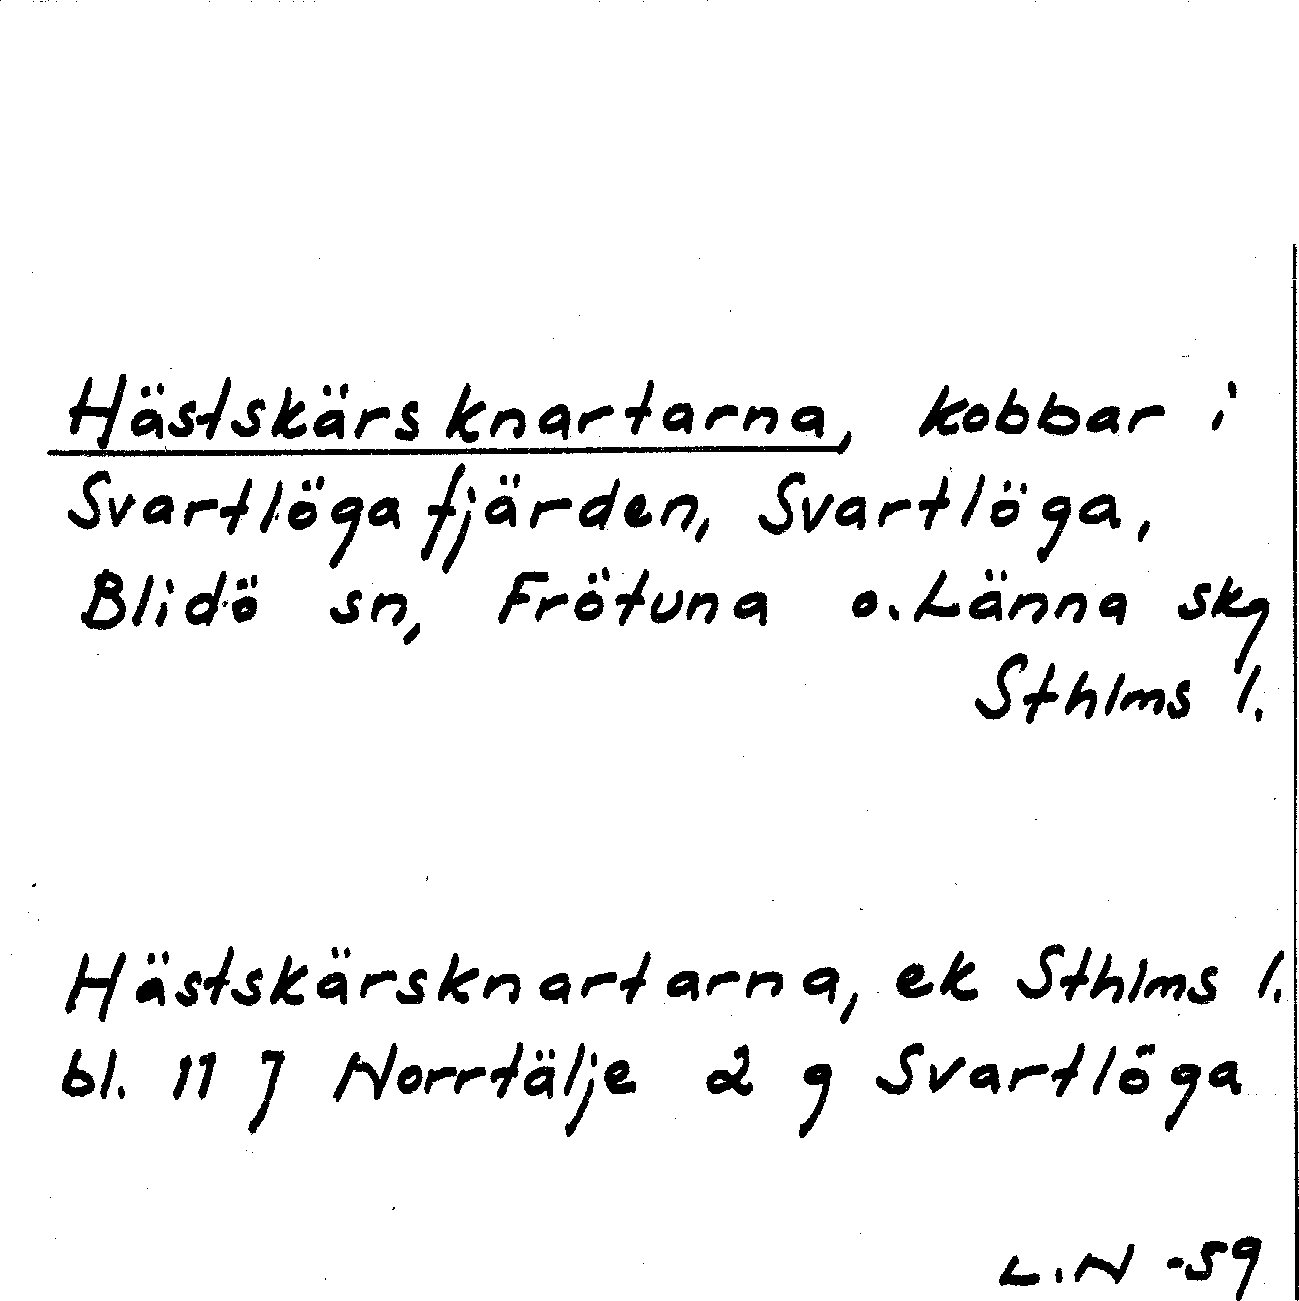 Hästskärsknartarna, kobbar i
Svartlögafjärden, Svartlöga,
Blidö sn, Frötuna o. Länna skg
Sthlms l.
Hästskärsknartarna, ek Sthlms l.
bl. 11 J Norrtälje 2 g Svartlöga
L.N -59